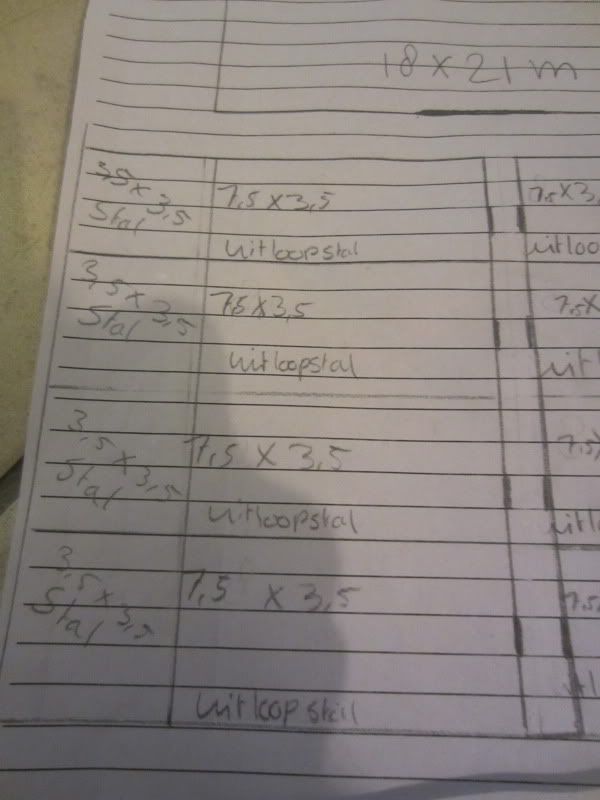 18 x 21 m
3,5 x 3,5
Stal
7,5 x 3,5
uitloopstal
7,5 x 3,
uitloo
3,5 x 3,5
Stal
7,5 x 3,5
uitloopstal
7,5 x
uitl
3,5 x 3,5
Stal
7,5 x 3,5
uitloopstal
7,5 x
uitl
3,5 x 3,5
Stal
7,5 x 3,5
uitloop stal
7,5